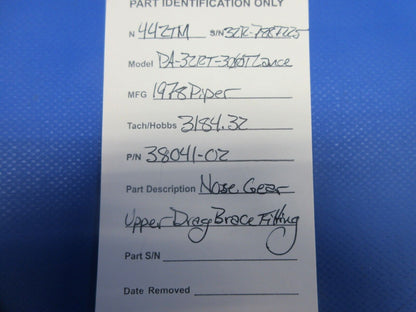 PART IDENTIFICATION ONLY
N 442TM S/N 32R-7887225
Model PA-32RT-300T Lance
MFG 1978 Piper
Tach/Hobbs 3184.32
P/N 38041-02
Part Description Nose Gear
Upper Drag Brace Fitting
Part S/N
Date Removed